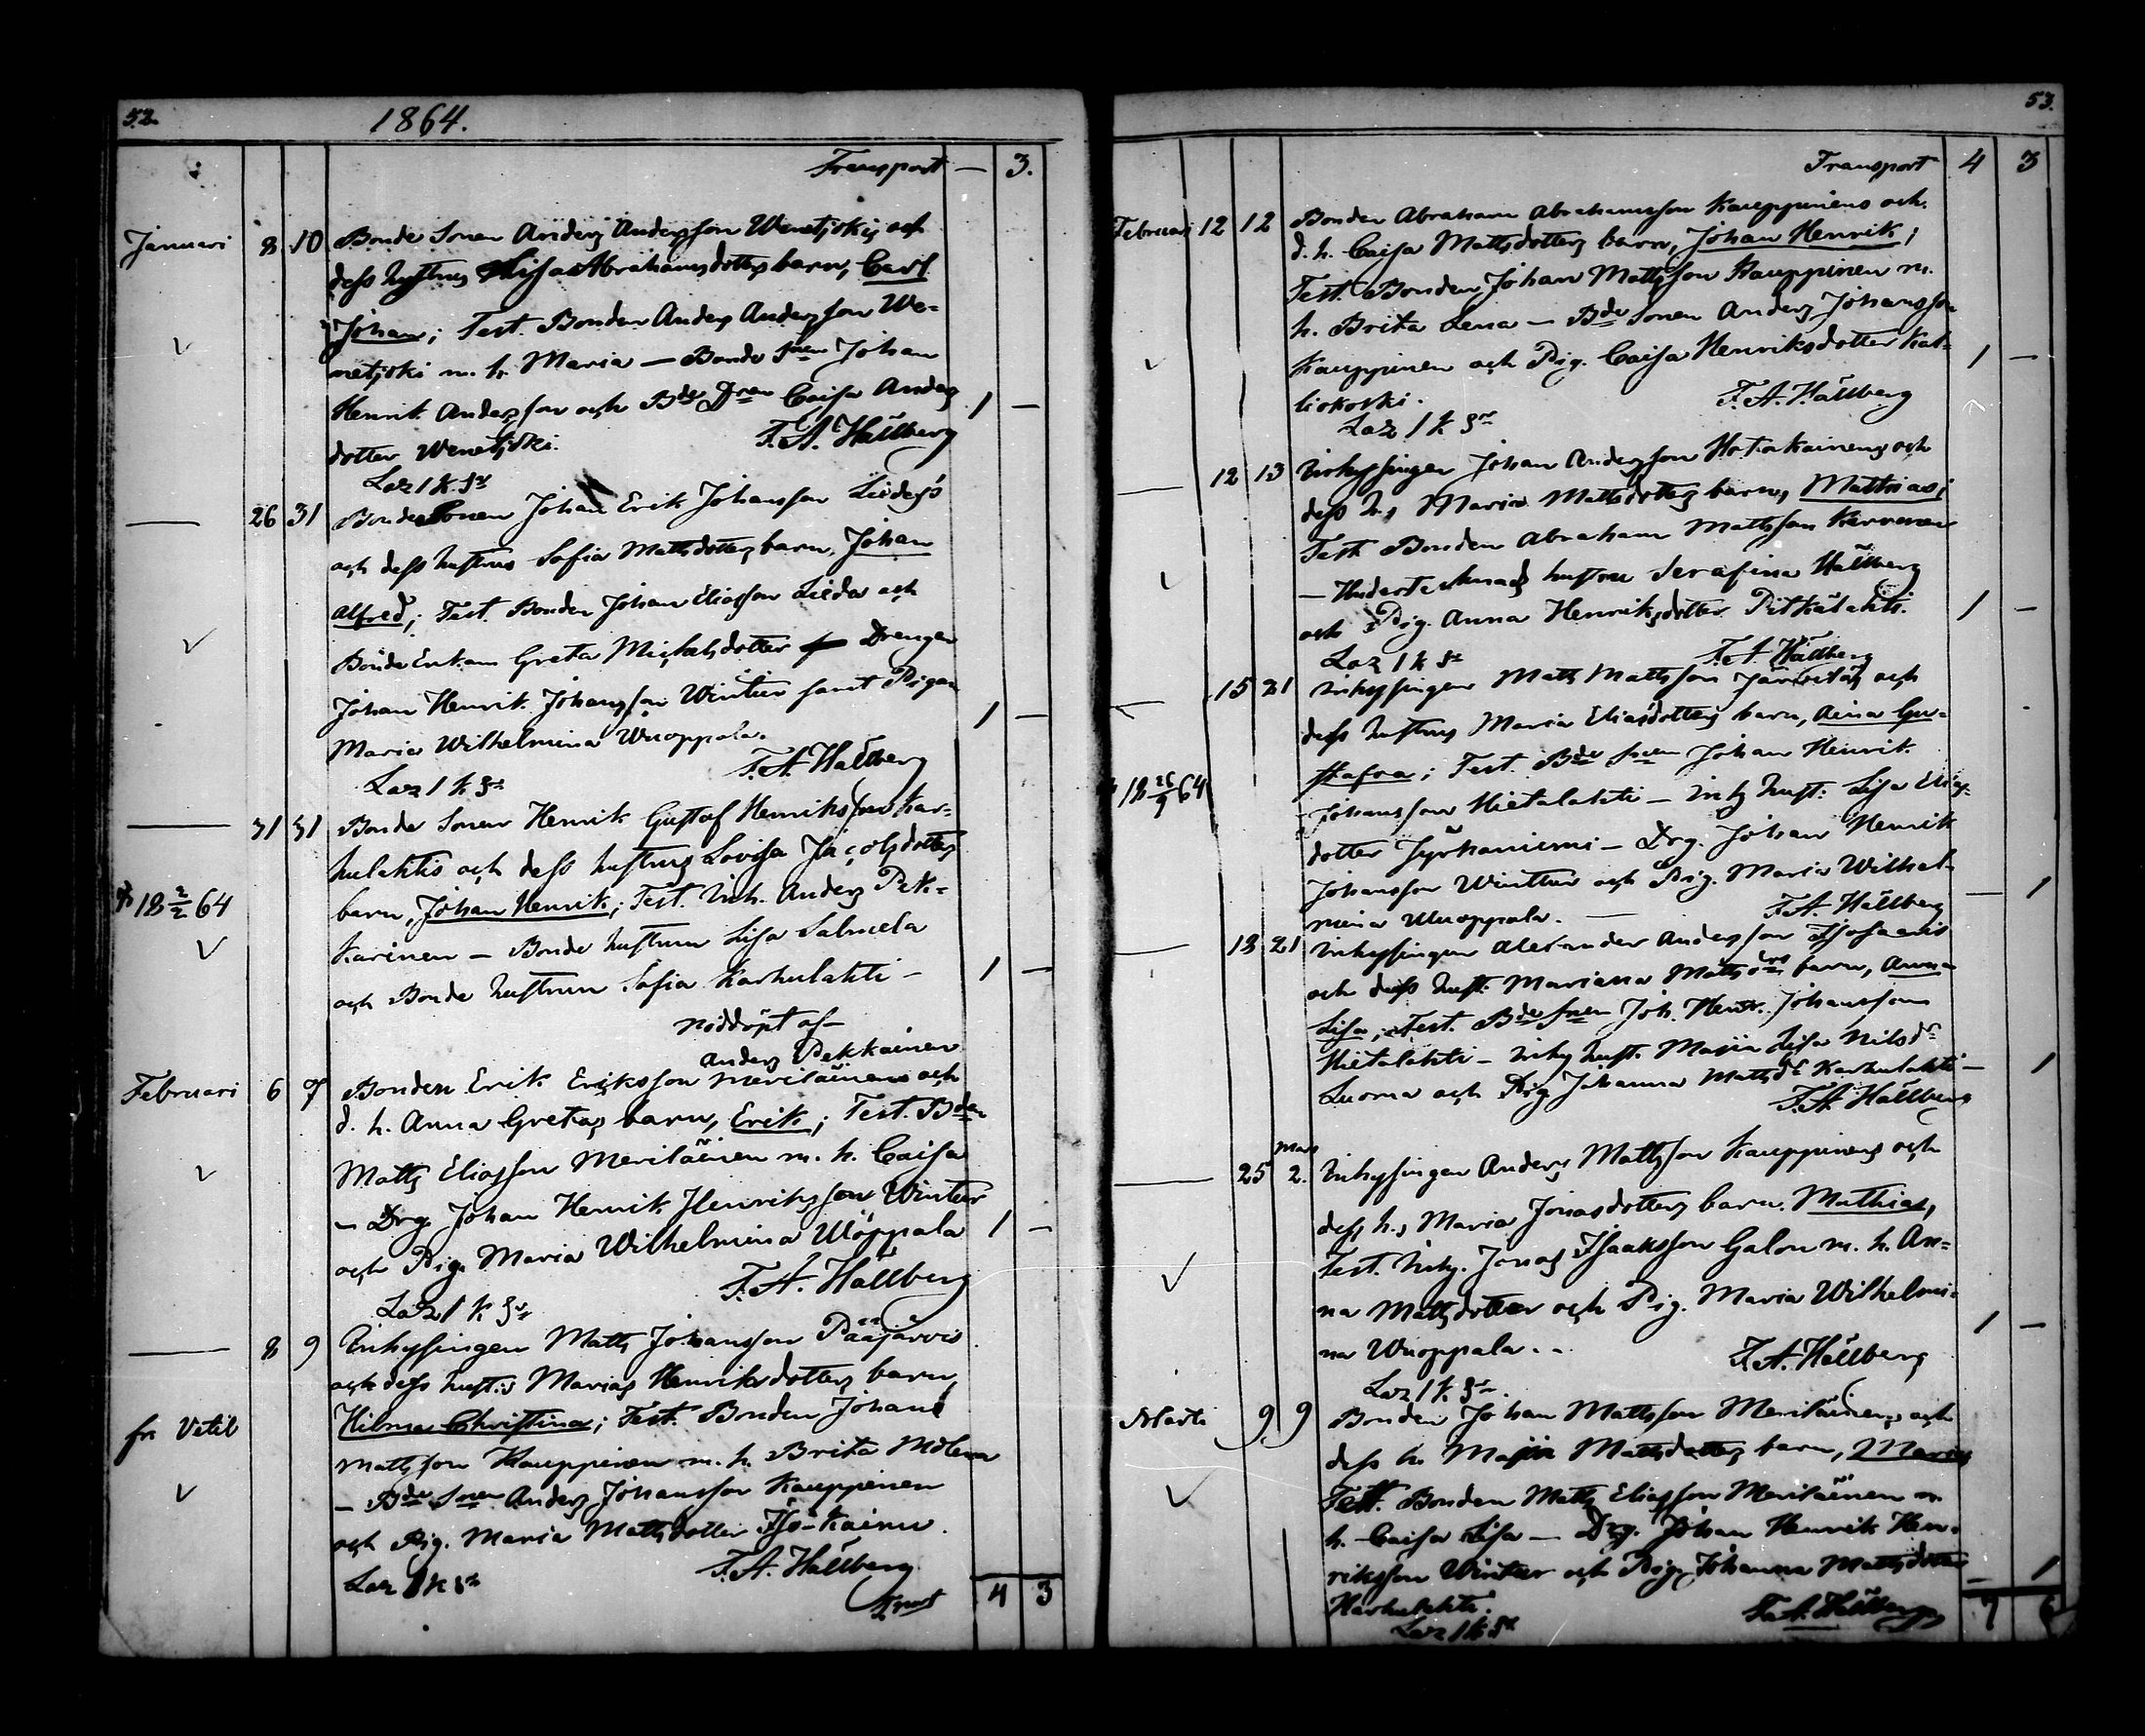 52. 1864.
Transport — 3.
Januari 8 10 Bonde Sonen Anders Andersson Wenetjokis och
dess hustrus Lisa Abrahamsdotters barn, Carl
Johan; Test. Bonden Anders Andersson We-
netjoki m. h. Maria — Bonde Snen Johan
Henrik Andersson och Bde Dren Caisa Anders 1 —
dotter Wenetjoki. F. A. Hällberg
Laz 1 k Sr
— 26 31 BondeSonen Johan Erik Johansson Liedes's
och dess hustrus Sofia Mattsdotters barn, Johan
Alfred; Test. Bonden Johan Eliasson Liedes och
Bonde Enkan Greta Michelsdotter Drengen
Johan Henrik Johansson Winter samt Pigan
Maria Wilhelmina Wuoppala. 1 —
Laz 1 k Sr F. A. Hällberg
— 31 31 Bonde Sonen Henrik Gustaf Henriksson Kar-
hulahtis och dess hustrus Lovisa Jacobsdotters
18 2/2 64 barn, Johan Henrik; Test. Inh. Anders Pek-
karinen — Bonde hustrun Lisa Salmela
och Bonde hustrun Sofia Karhulahti — 1 —
Nöddöpt af
Anders Pekkainen
Februari 6 7 Bonden Erik Eriksson Meriläinens och
d. h. Anna Gretas barn, Erik; Test. Bden
Matts Eliasson Meriläinen m. h. Caisa
— Drg. Johan Henrik Henriksson Winter
och Pig. Maria Wilhelmina Woppala 1 —
F. A. Hällberg
Laz 1 k Sr
— 8 9 Inhysingen Matts Johansson Pääjärvis
och dess hust:s Marias Henriksdotters barn,
fr Vetil Hilma Christina; Test. Bonden Johan
Mattsson Kauppinen m. h. Brita
— Bde Snen Anders Johansson Kauppinen
och Pig. Maria Mattsdotter Iso-Kainu.
Laz 1 k Sr F. A. Hällberg
Trport 4 3
53.
Transport 4 3
Februari 12 12 Bonden Abraham Abrahamsson Kauppinens och
d. h. Caisa Mattsdotters barn, Johan Henrik;
Test. Bonden Johan Mattsson Kauppinen m.
h. Brita Lena — Bde Sonen Anders Johansson
Kauppinen och Pig. Caisa Henriksdotter Kal- 1 —
liokoski. F. A. Hällberg
Laz 1 k Sr
— 12 13 Inhysingen Johan Andersson Hatakainens och
dess h:s Maria Mattsdotters barn, Mathias;
Test. Bonden Abraham Mattsson Kerronen
— Undertecknads hustru Serafina Hällberg
och Pig. Anna Henriksdotter Pitkälahti. 1 —
Laz 1 k Sr F. A. Hällberg
15 21 Inhysingen Matts Mattsson och
dess hustrus Maria Eliasdotters barn, Aina Gu-
stafva; Test. Bde Snen Johan Henrik
18 26/9 64 Johansson Hietalahti — Inh. hust: Lisa Elias-
dotter Syrhaniemi — Drg. Johan Henrik
Johansson Winter och Pig. Maria Wilhel-
mina Wuoppala. — — 1
F. A. Hällberg
— 18 21 Inhysingen Alexander Andersson
och dess hust. Mariana Matts drs barn, Anna
Lisa; Test. Bde Snen Joh. Henr. Johansson
Hietalahti — Inhy hust. Maria Lisa Nilsdr
Luoma och Pig Johanna Mattsdr Karhulahti — 1
F. A. Hällberg
Mars
— 25 2. Inhysingen Anders Mattsson Kauppinens och
dess h:s Maria Jonasdotters barn. Mathias,
Test. Inhy. Jonas Isaaksson Galon m. h. An-
na Mattsdotter och Pig. Maria Wilhelmi-
na Wuoppala. 1 —
F. A. Hällberg
Laz 1 k Sr
Marti 9 9 Bonden Johan Mattsson Meriläinens och
dess h. Maria Mattsdotters barn, Maria
Test. Bonden Matts Eliasson Meriläinen m
h. Caisa Lisa — Drg. Johan Henrik Hen-
riksson Winter och Pig. Johanna Mattsdotter
Karhulahti. — 1
F. A. Hällberg 7 6
Laz 1 k Sr